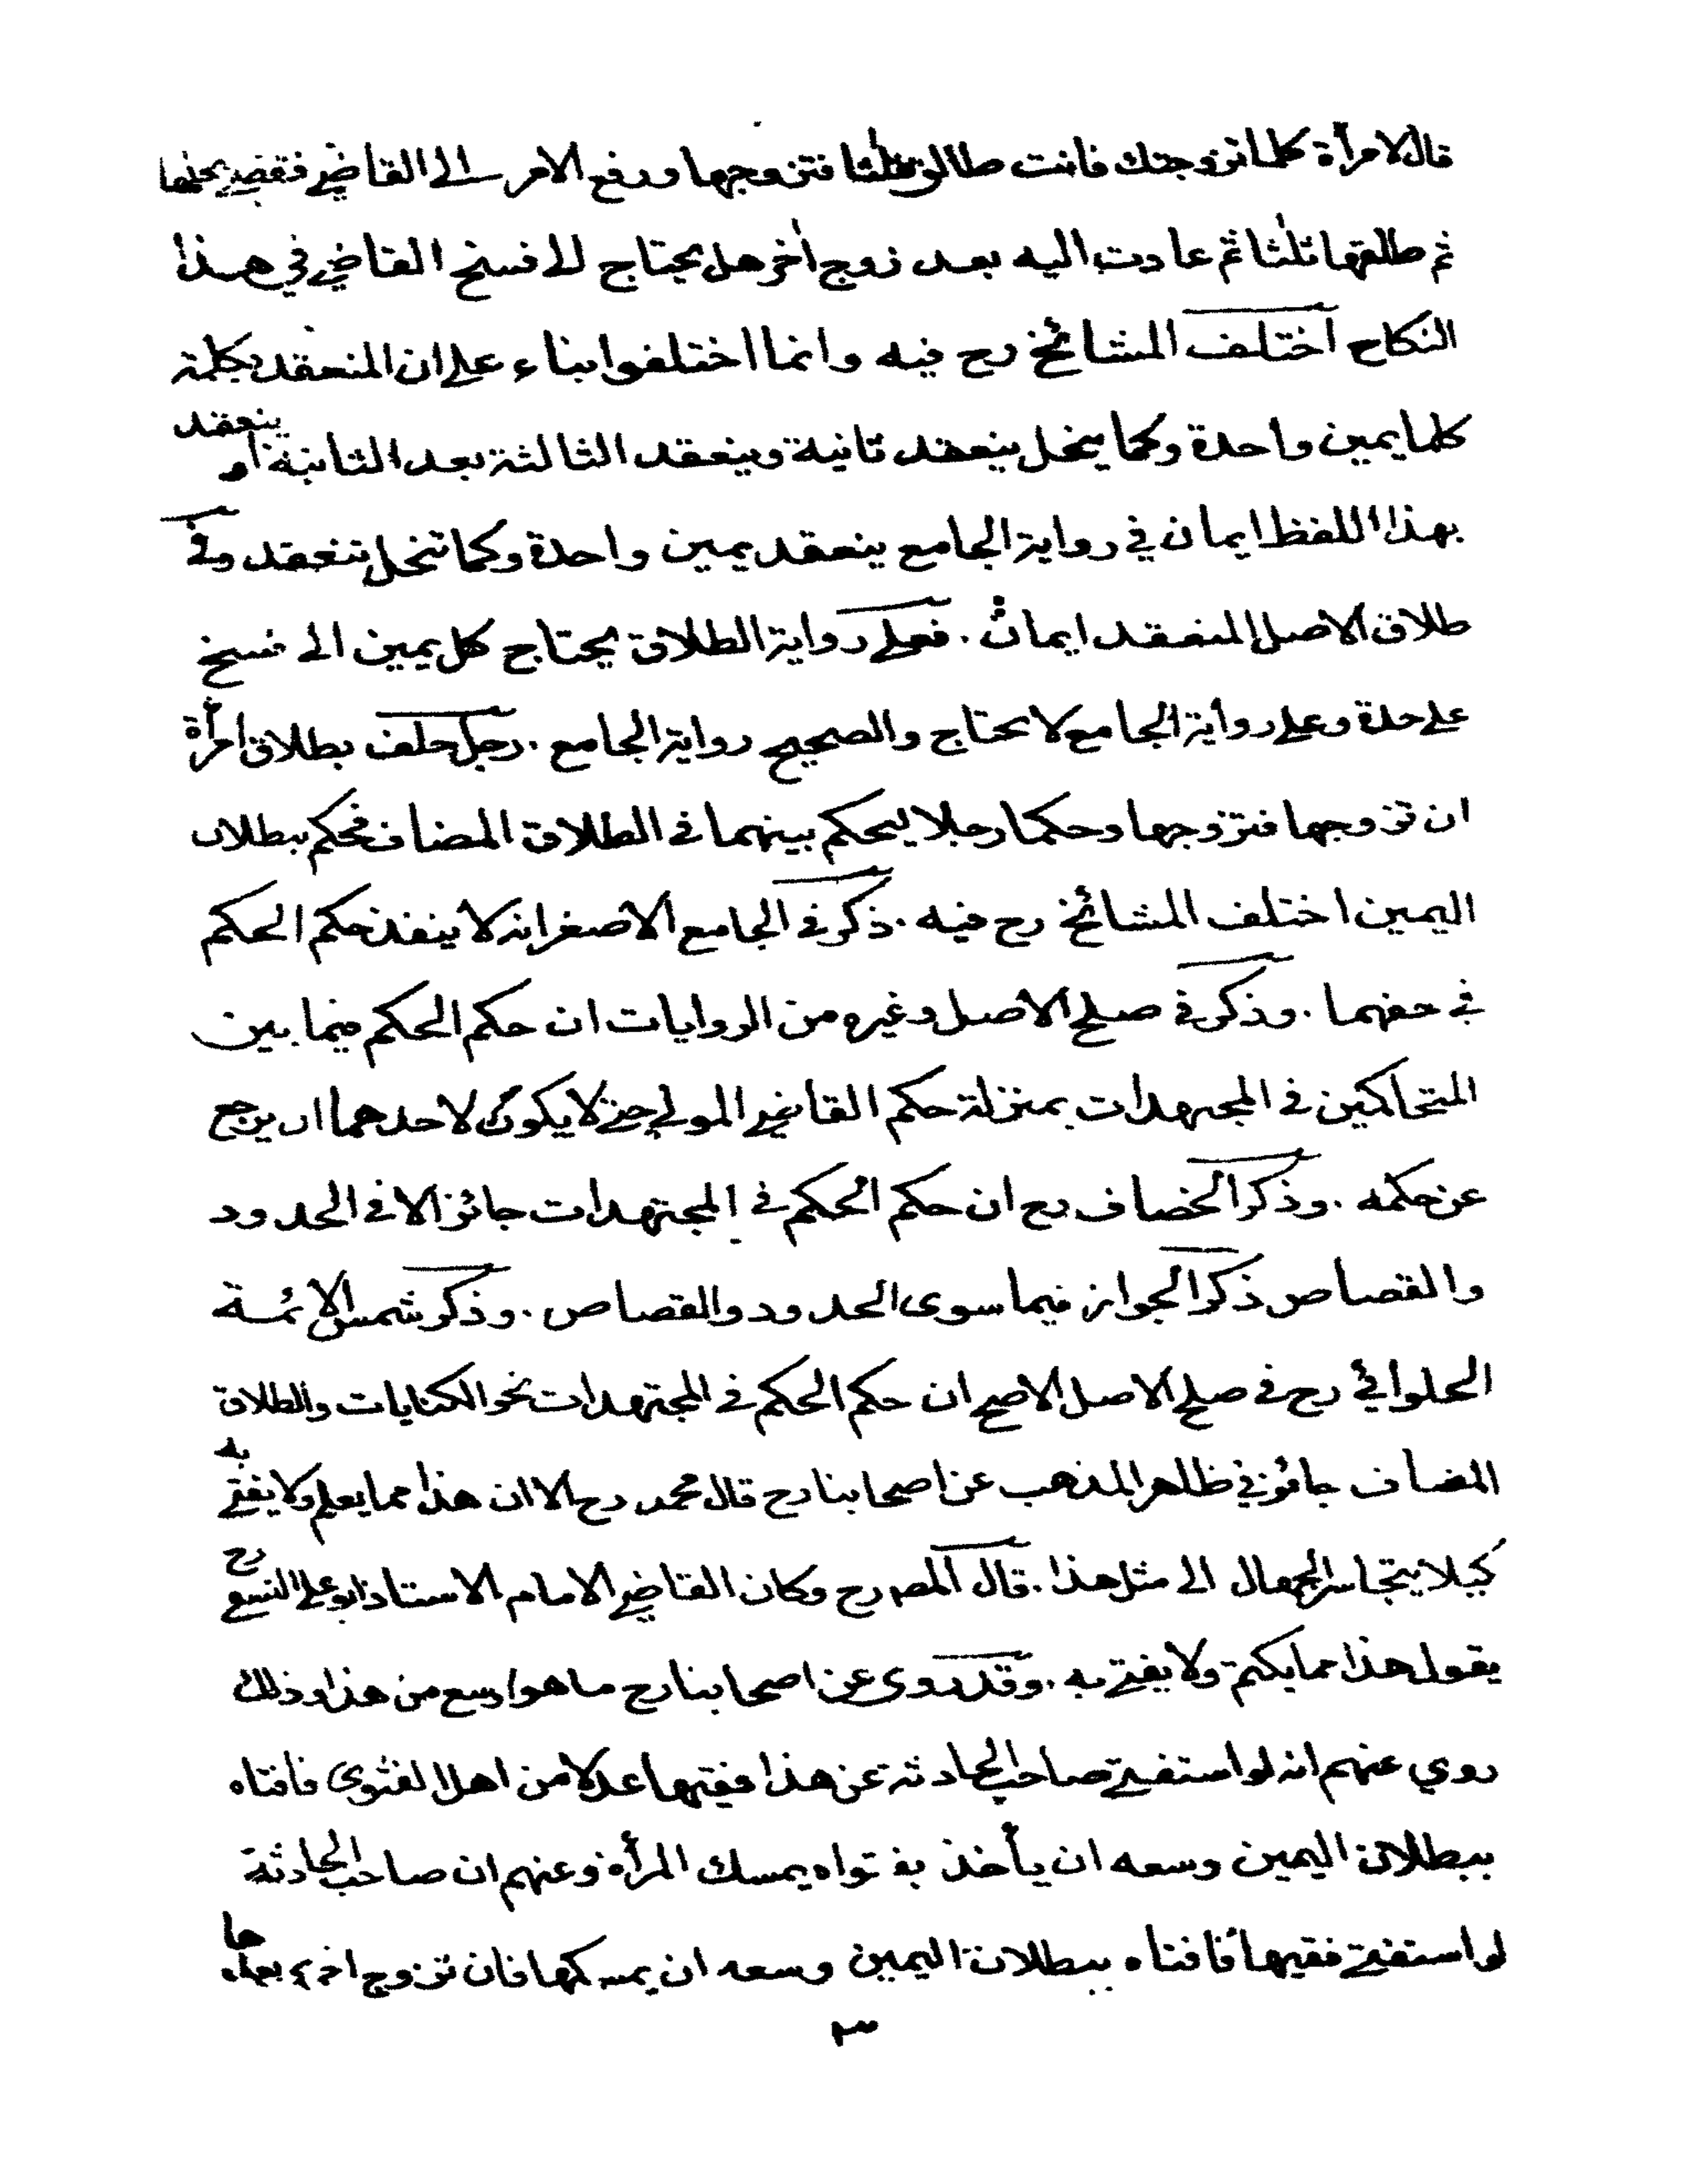 قال لامرأة كلما تزوجتك فانت طالق ثلثا فتزوجها ورفع الامر الى القاضي فقضى بحلها
ثم طلقها ثلثا ثم عادت اليه بعد زوج اخر هل يحتاج الى فسخ القاضي في هذا
النكاح اختلف المشائخ رح فيه وانما اختلفوا بناء على ان المنعقد بكلمة
كلما يمين واحدة وكما ينحل ينعقد ثانية وينعقد الثالثة بعد الثانية ام ينعقد
بهذا اللفظ ايمان في رواية الجامع ينعقد يمين واحدة وكما تنحل تنعقد وفي
طلاق الاصل المنعقد ايمان . فعلى رواية الطلاق يحتاج كل يمين الى فسخ
على حدة وعلى رواية الجامع لا يحتاج والصحيح رواية الجامع . رجل حلف بطلاق امرأة
ان تزوجها فتزوجها وحكما رجلا ليحكم بينهما في الطلاق المضاف فحكم ببطلان
اليمين اختلف المشائخ رح فيه . ذكر في الجامع الاصغر انه لا ينفذ حكم الحكم
في حقهما . وذكر في صلح الاصل وغيره من الروايات ان حكم الحكم فيما بين
المتحاكمين في المجتهدات بمنزلة حكم القاضي المولى حتى لا يكون لاحدهما ان يرجع
عن حكمه . وذكر الخصاف رح ان حكم الحكم في المجتهدات جائز الا في الحدود
والقصاص ذكر الجواز فيما سوى الحدود والقصاص . وذكر شمس الائمة
الحلوائي رح في صلح الاصل الاصح ان حكم الحكم في المجتهدات نحو الكنايات والطلاق
المضاف جائز في ظاهر المذهب عن اصحابنا رح قال محمد رح الا ان هذا مما يعلم ولا يفتى به
كيلا يتجاسر الجهال الى مثل هذا . قال المص رح وكان القاضي الامام الاستاذ ابو علي النسفي رح
يقول هذا مما يكتم ولا يفتى به . وقد روى عن اصحابنا رح ما هو اوسع من هذا وذلك
روي عنهم انه لو استفتى صاحب الحادثة عن هذا فقيها عدلا من اهل الفتوى فافتاه
ببطلان اليمين وسعه ان يأخذ بفتواه يمسك المرأة وعنهم ان صاحب الحادثة
لو استفتى فقيها فافتاه ببطلان اليمين وسعه ان يمسكها فان تزوج اخرى بعدها
٣